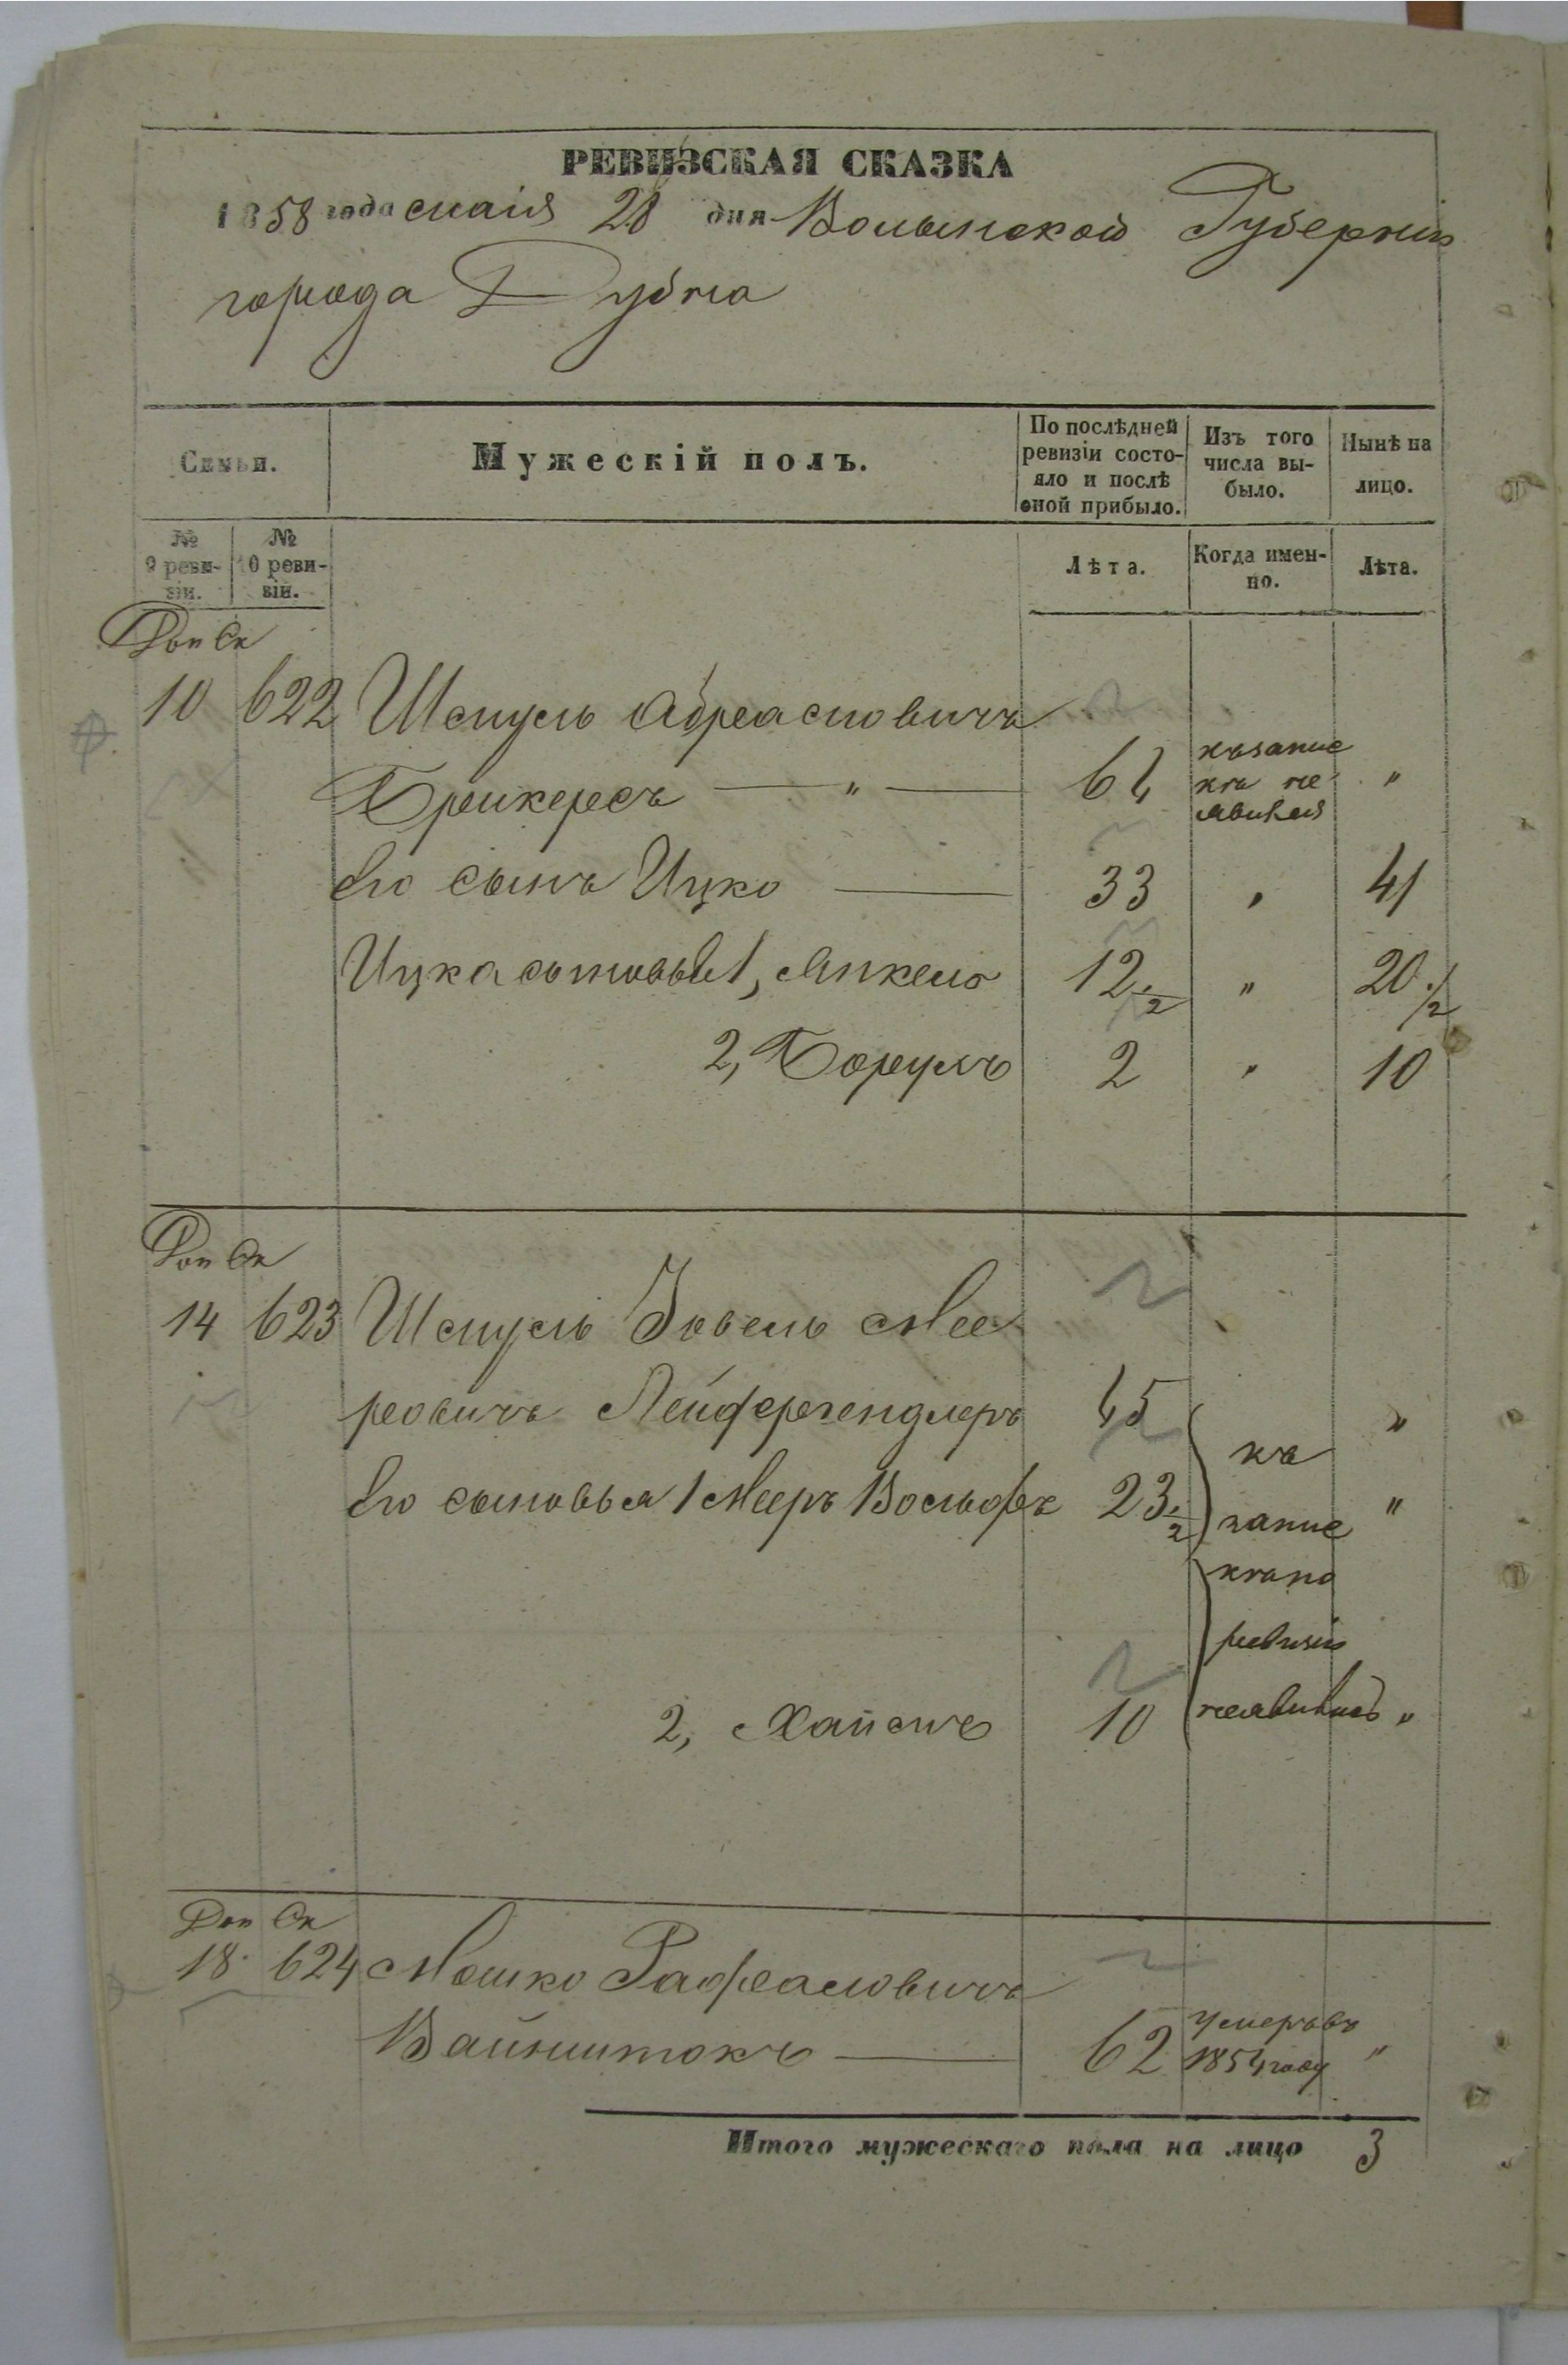 РЕВИЗСКАЯ СКАЗКА
1858 года Маія 28 дня Волынской Губерніи
города Дубна
Семьи.
Мужескій полъ.
По послѣдней ревизіи состо-яло и послѣ оной прибыло.
Изъ того числа вы-было.
Нынѣ на лицо.
№ 9 реви-зіи.
№ 10 реви-зіи.
Лѣта.
Когда имен-но.
Лѣта.
Доп Ск
10 622 Шмуль Абрамовичъ
Брикересъ — " — 64 "
Его сынъ Ицко — 33 " 41
Ицка сыновья 1, Янкель 12 1/2 " 20 1/2
2, Борухъ 2 " 10
Доп Ск
14 623 Шмуль Іовель Мее
ровичъ Лейфергендлеръ 45 "
къ
Его сыновья 1 Мееръ Вольфъ 23 1/2 запис "
ревизіи
2, Хаимъ 10 неявились "
Доп Ск
18 624 Мошко Рафаловичъ
Вайнштокъ — 62 умеръ въ 1854 году "
Итого мужескаго пола на лицо 3